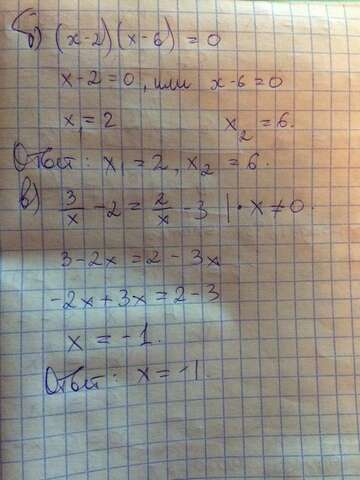 б) (x-2)(x-6) = 0
x-2=0, или x-6=0
x₁=2 x₂=6.
Ответ: x₁=2, x₂=6.
в) 3/x - 2 = 2/x - 3 | • x ≠ 0.
3-2x=2-3x
-2x+3x=2-3
x = -1.
Ответ: x=-1.